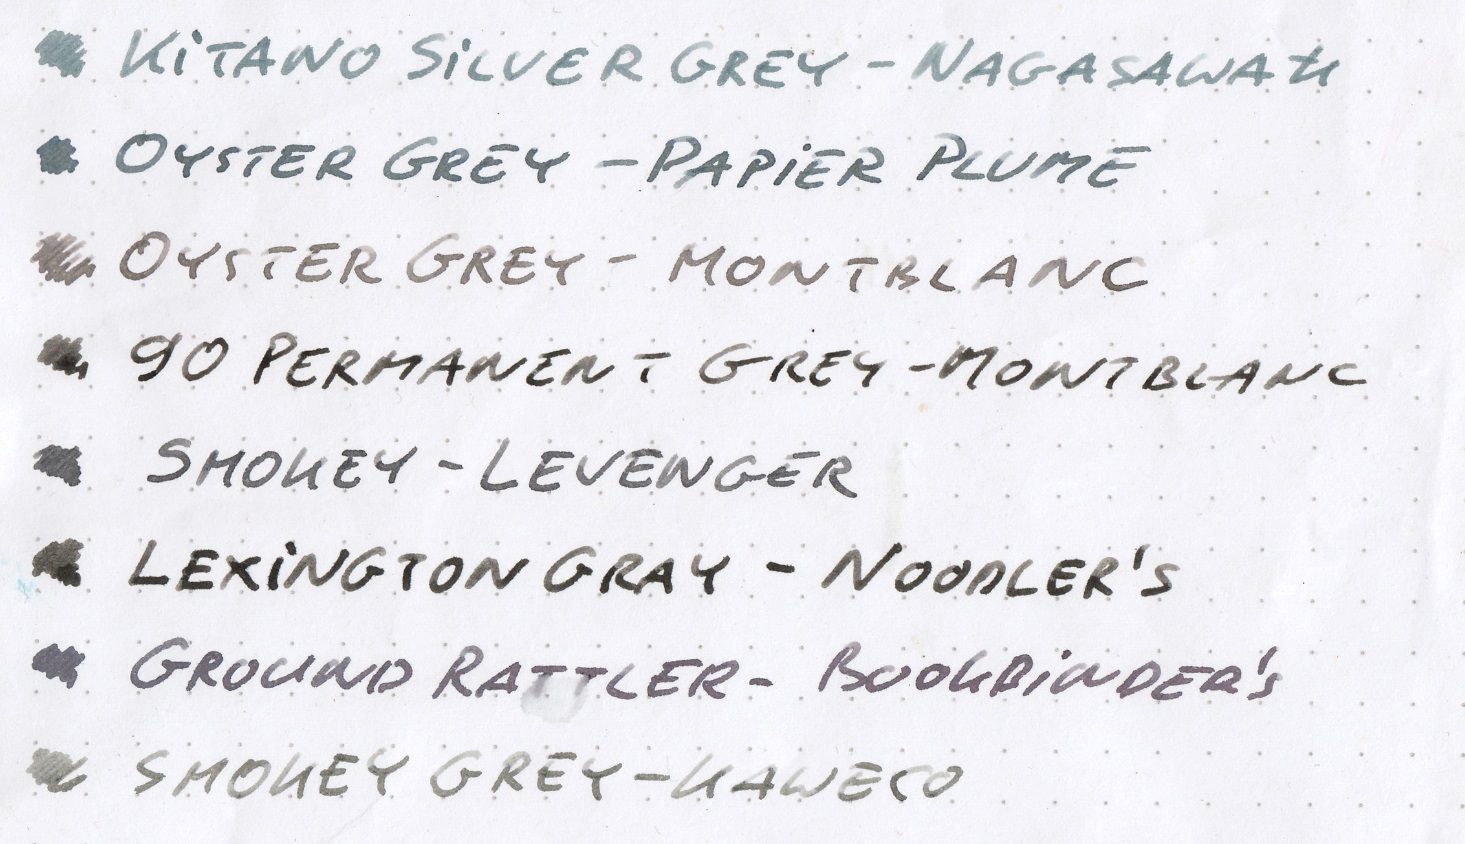 KiTANO SiLVER GREY - NAGASAWA
OYSTER GREY - PAPiER PLUME
OYSTER GREY - MONTBLANC
90 PERMANENT GREY - MONTBLANC
SMOKEY - LEVENGER
LEXiNGTON GRAY - NOODLER'S
GROUND RATTLER - BOOKBiNDER'S
SMOKEY GREY - KAWECO